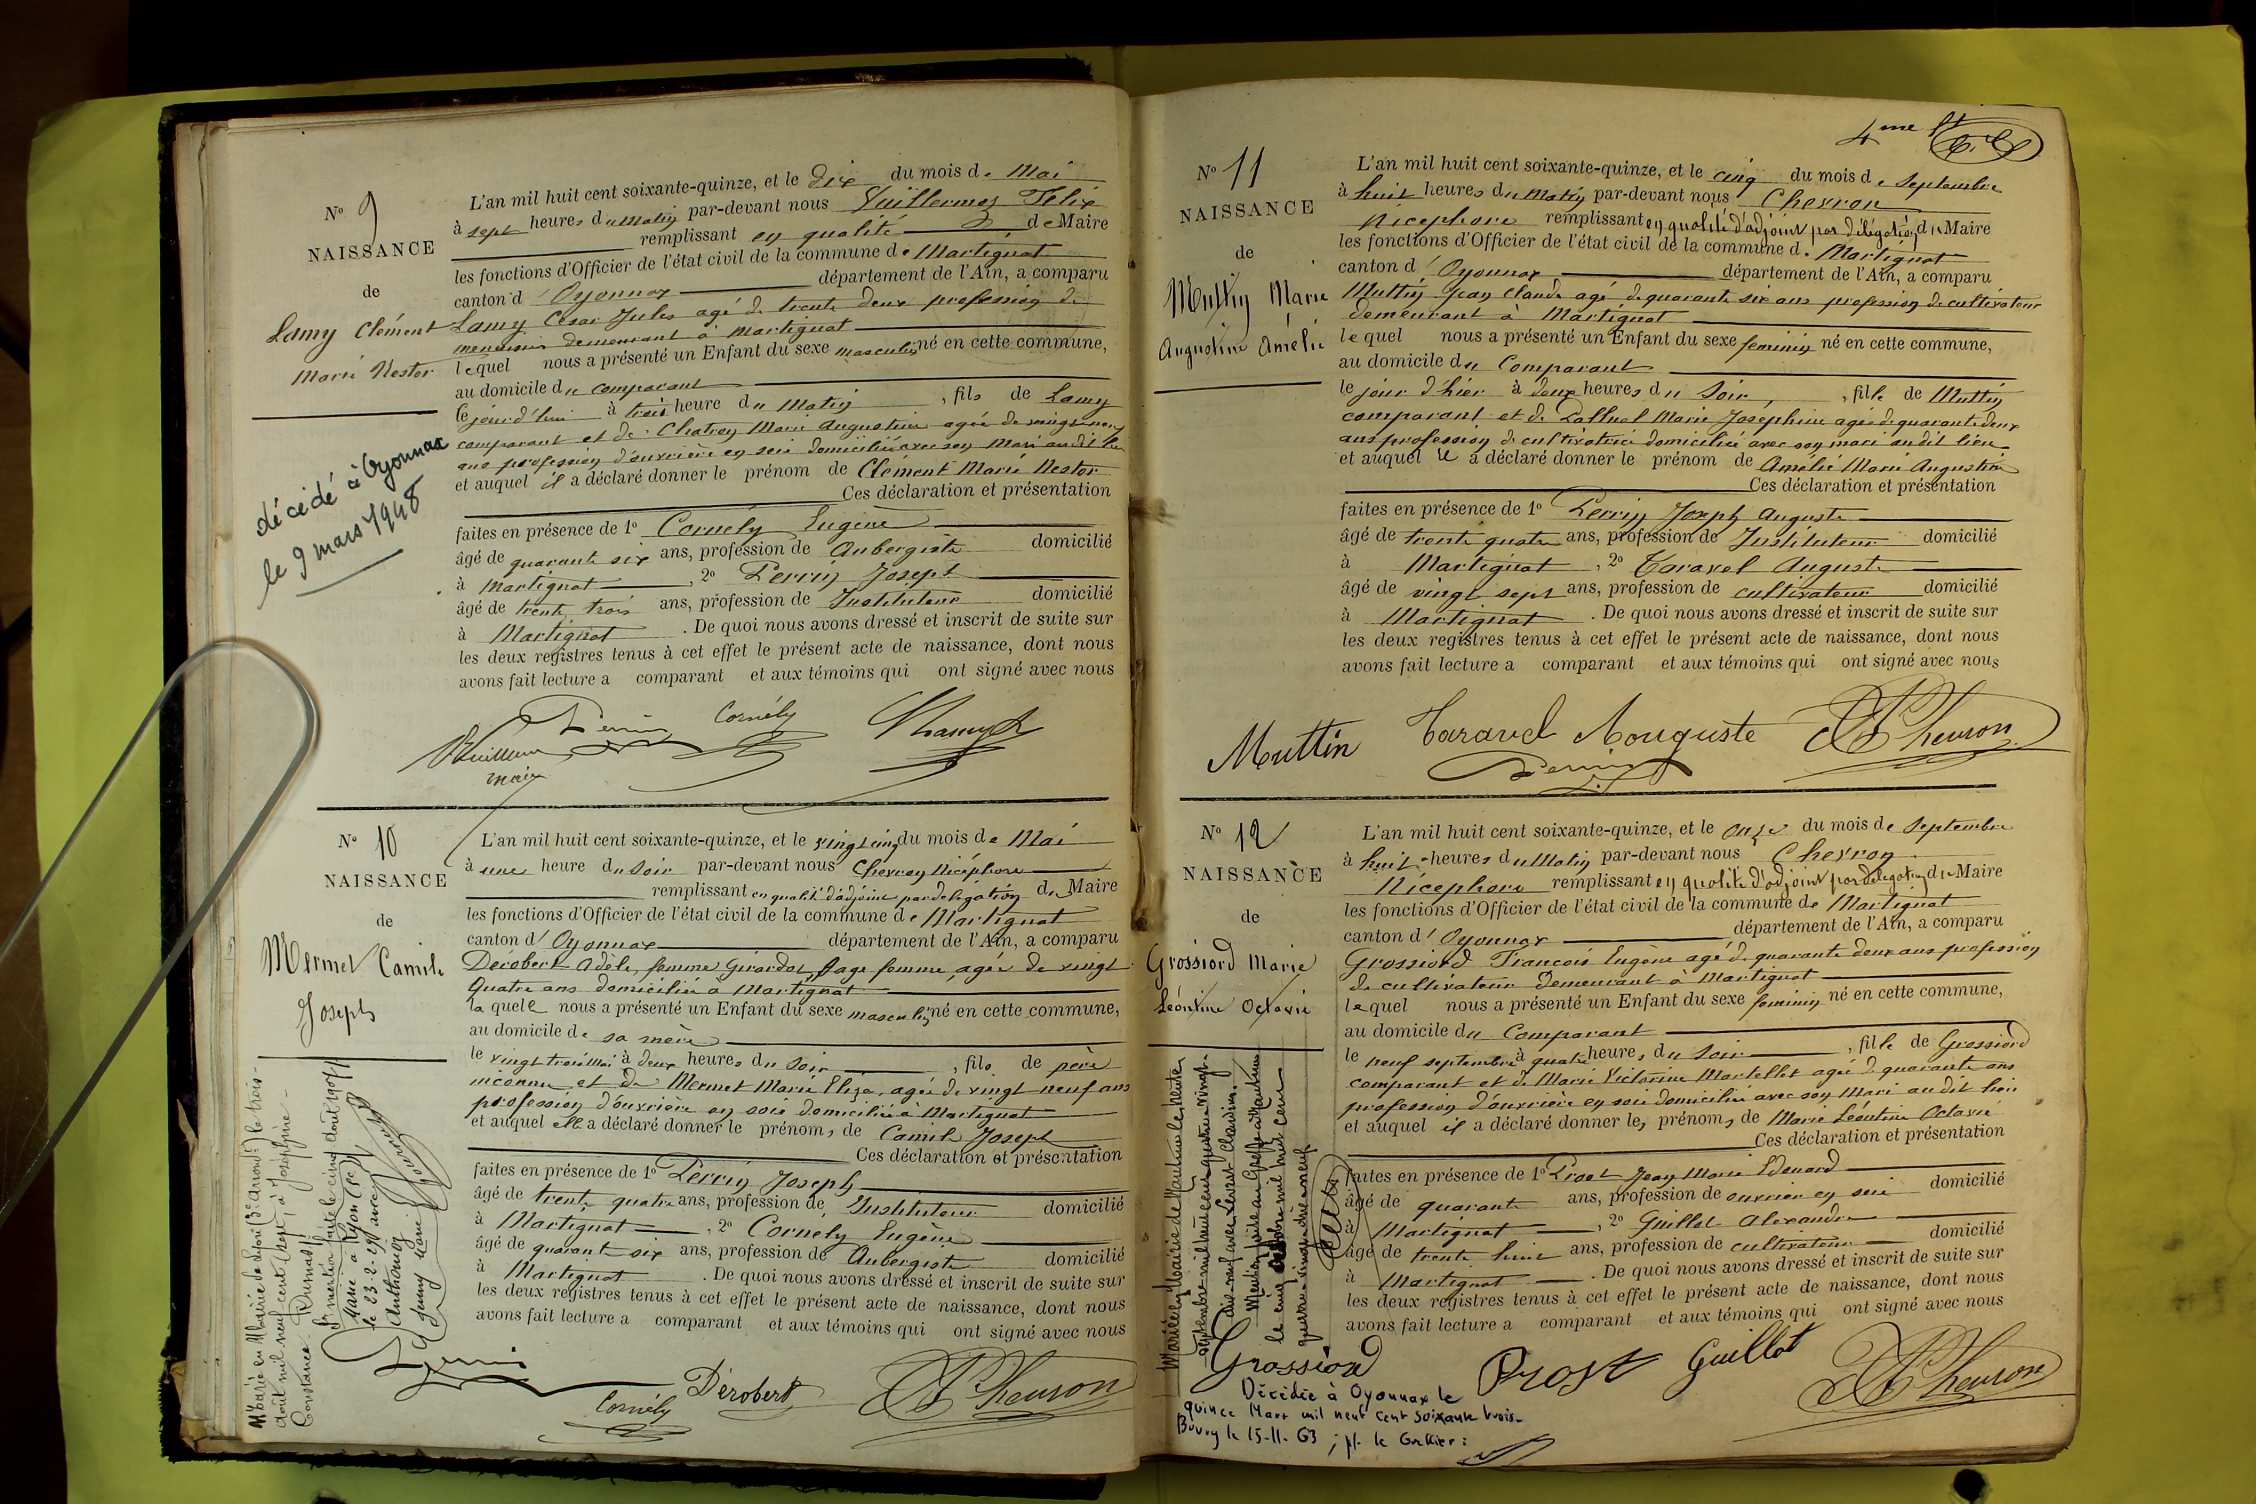 No 9
NAISSANCE
de
Lamy Clément
Marie Nestor
décédé à Oyonnax
le 9 mars 1948
L'an mil huit cent soixante-quinze, et le dix du mois de Mai
à sept heures du Matin par-devant nous Vuillermoz Félix
remplissant en qualité de Maire
les fonctions d'Officier de l'état civil de la commune de Martignat
canton d'Oyonnax département de l'Ain, a comparu
Lamy César Jules agé de trente deux profession de
menuisier demeurant à Martignat
lequel nous a présenté un Enfant du sexe masculin né en cette commune,
au domicile du comparant
le jour d'hui à trois heure du Matin, fils de Lamy
comparant et de Chatron Marie Augustine agée de vingt neuf
ans profession d'ouvrière en soie domiciliée avec son Mari au dit lieu
et auquel il a déclaré donner le prénom de Clément Marie Nestor
Ces déclaration et présentation
faites en présence de 1o Cornély Eugène
âgé de quarante six ans, profession de Aubergiste domicilié
à Martignat, 2o Perrin Joseph
âgé de trente trois ans, profession de Instituteur domicilié
à Martignat. De quoi nous avons dressé et inscrit de suite sur
les deux registres tenus à cet effet le présent acte de naissance, dont nous
avons fait lecture a comparant et aux témoins qui ont signé avec nous
Perrin Cornély
maire
No 10
NAISSANCE
de
Mermet Camille
Joseph
Marié en Mairie de Lyon (3e arrond.) le trois-
août mil neuf cent sept, à Joséphine-
Constance
mention faite le cinq août 1907
Marié à Lyon
le 23-2-29 avec
Jenny Marie
L'an mil huit cent soixante-quinze, et le vingt cinq du mois de Mai
à une heure du soir par-devant nous Chevron Nicéphore
remplissant en qualité d'adjoint par délégation du Maire
les fonctions d'Officier de l'état civil de la commune de Martignat
canton d'Oyonnax département de l'Ain, a comparu
Derobert Adèle, femme Girardot, sage femme, agée de vingt
quatre ans domiciliée à Martignat
la quelle nous a présenté un Enfant du sexe masculin né en cette commune,
au domicile de sa mère
le vingt trois Mai à deux heures du soir, fils de père
inconnu et de Mermet Marie Eliza, agée de vingt neuf ans
profession d'ouvrière en soie domiciliée à Martignat
et auquel elle a déclaré donner le prénoms de Camille Joseph
Ces déclaration et présentation
faites en présence de 1o Perrin Joseph
âgé de trente quatre ans, profession de Instituteur domicilié
à Martignat, 2o Cornély Eugène
âgé de quarante six ans, profession de Aubergiste domicilié
à Martignat. De quoi nous avons dressé et inscrit de suite sur
les deux registres tenus à cet effet le présent acte de naissance, dont nous
avons fait lecture a comparant et aux témoins qui ont signé avec nous
Perrin Cornély Dérobert Chevron
4me ft
No 11
NAISSANCE
de
Muttin Marie
Augustine Amélie
L'an mil huit cent soixante-quinze, et le cinq du mois de Septembre
à huit heures du Matin par-devant nous Chevron
Nicephore remplissant en qualité d'adjoint par délégation du Maire
les fonctions d'Officier de l'état civil de la commune de Martignat
canton d'Oyonnax département de l'Ain, a comparu
Muttin Jean Claude agé de quarante six ans profession de cultivateur
demeurant à Martignat
lequel nous a présenté un Enfant du sexe feminin né en cette commune,
au domicile du Comparant
le jour d'hier à deux heures du Soir, fille de Muttin
comparant et de Marie Josephine agée de quarante deux
ans profession de cultivatrice domiciliée avec son mari au dit lieu
et auquel il a déclaré donner le prénom de Amélie Marie Augustine
Ces déclaration et présentation
faites en présence de 1o Perrin Joseph Auguste
âgé de trente quatre ans, profession de Instituteur domicilié
à Martignat, 2o Taravel Auguste
âgé de vingt sept ans, profession de cultivateur domicilié
à Martignat. De quoi nous avons dressé et inscrit de suite sur
les deux registres tenus à cet effet le présent acte de naissance, dont nous
avons fait lecture a comparant et aux témoins qui ont signé avec nous
Muttin Taravel Aouguste Chevron
Perrin
No 12
NAISSANCE
de
Grossiord Marie
Léontine Octavie
L'an mil huit cent soixante-quinze, et le onze du mois de Septembre
à huit heures du Matin par-devant nous Chevron
Nicephore remplissant en qualité d'adjoint par délégation du Maire
les fonctions d'Officier de l'état civil de la commune de Martignat
canton d'Oyonnax département de l'Ain, a comparu
Grossiord François Eugène agé de quarante deux ans profession
de cultivateur demeurant à Martignat
lequel nous a présenté un Enfant du sexe feminin né en cette commune,
au domicile du Comparant
le neuf septembre à quatre heures du Soir, fille de Grossiord
comparant et de Marie Victorine Martellet agée de quarante ans
profession d'ouvrière en soie domiciliée avec son Mari au dit lieu
et auquel il a déclaré donner les prénoms de Marie Léontine Octavie
Ces déclaration et présentation
faites en présence de 1o Prost Jean Marie Edouard
âgé de quarante ans, profession de ouvrier en soie domicilié
à Martignat, 2o Guillot Alexandre
âgé de trente huit ans, profession de cultivateur domicilié
à Martignat. De quoi nous avons dressé et inscrit de suite sur
les deux registres tenus à cet effet le présent acte de naissance, dont nous
avons fait lecture a comparant et aux témoins qui ont signé avec nous
Mariée en Mairie de le trente
septembre mil huit cent quatre vingt-
dix neuf avec
Mention faite au Greffe à Nantua
le cinq octobre mil huit cent
quatre-vingt-dix-neuf.
Grossiord Prost Guillot Chevron
Décédée à Oyonnax le
quinze Mars mil neuf cent soixante trois-
Bourg le 15-11-63 ; pr. le Greffier :